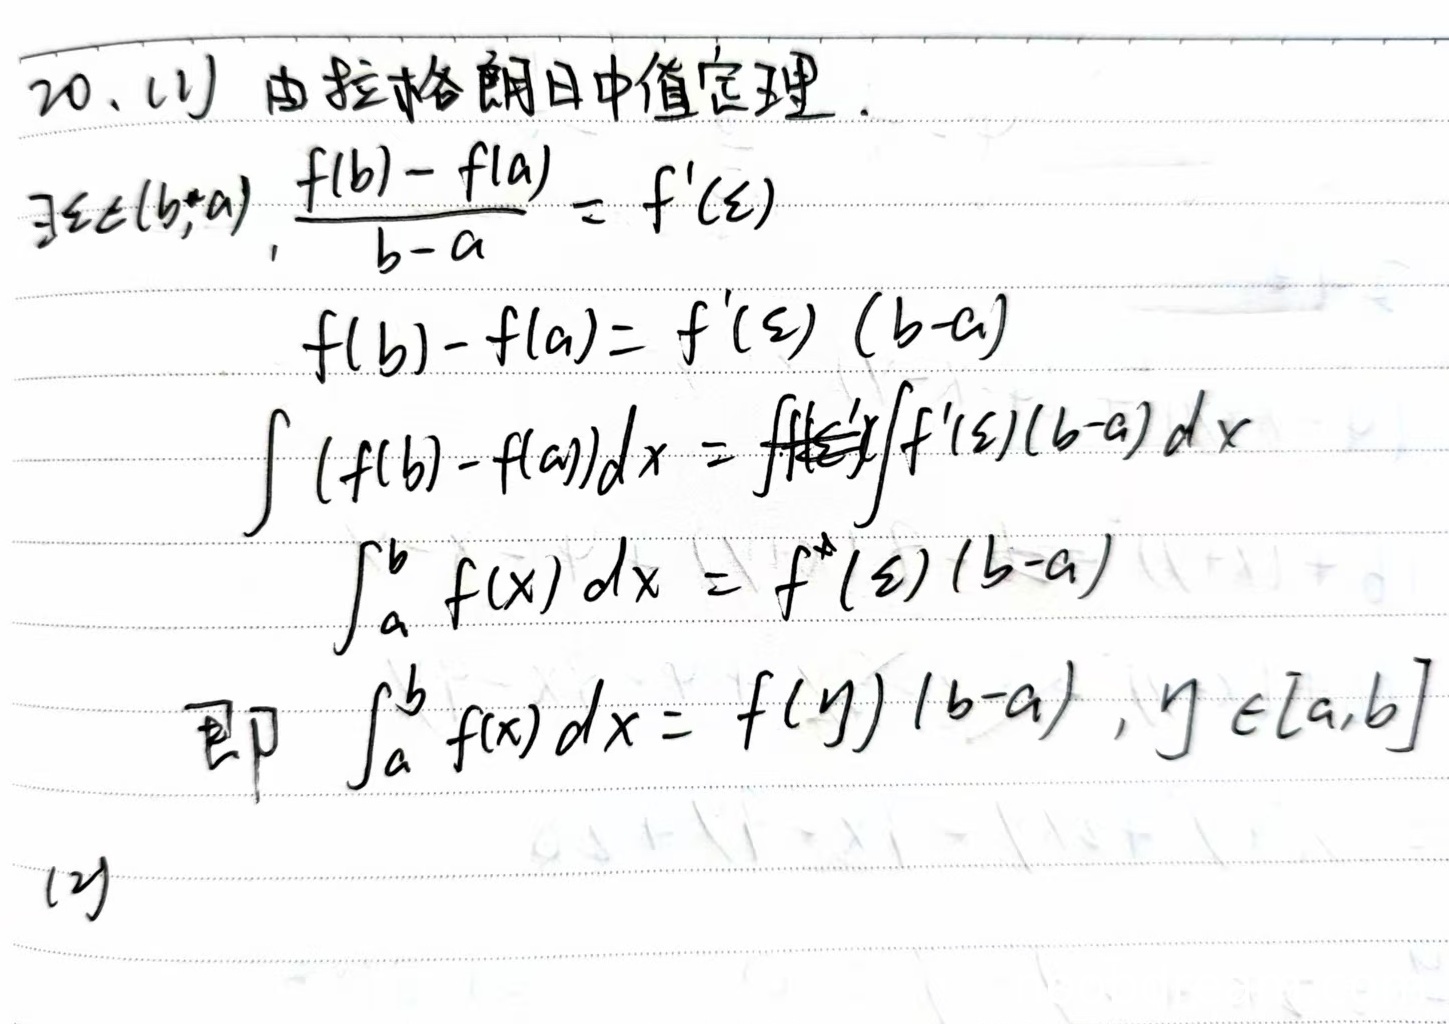 20、(1) 由拉格朗日中值定理.
∃ε∈(b,a), \frac{f(b)-f(a)}{b-a} = f'(ε)
f(b)-f(a)= f'(ε) (b-a)
∫ (f(b)-f(a))dx = ∫f'(ε)(b-a)dx
∫_a^b f(x) dx = f(ε)(b-a)
即 ∫_a^b f(x) dx = f(η)(b-a), η∈[a,b]
(2)